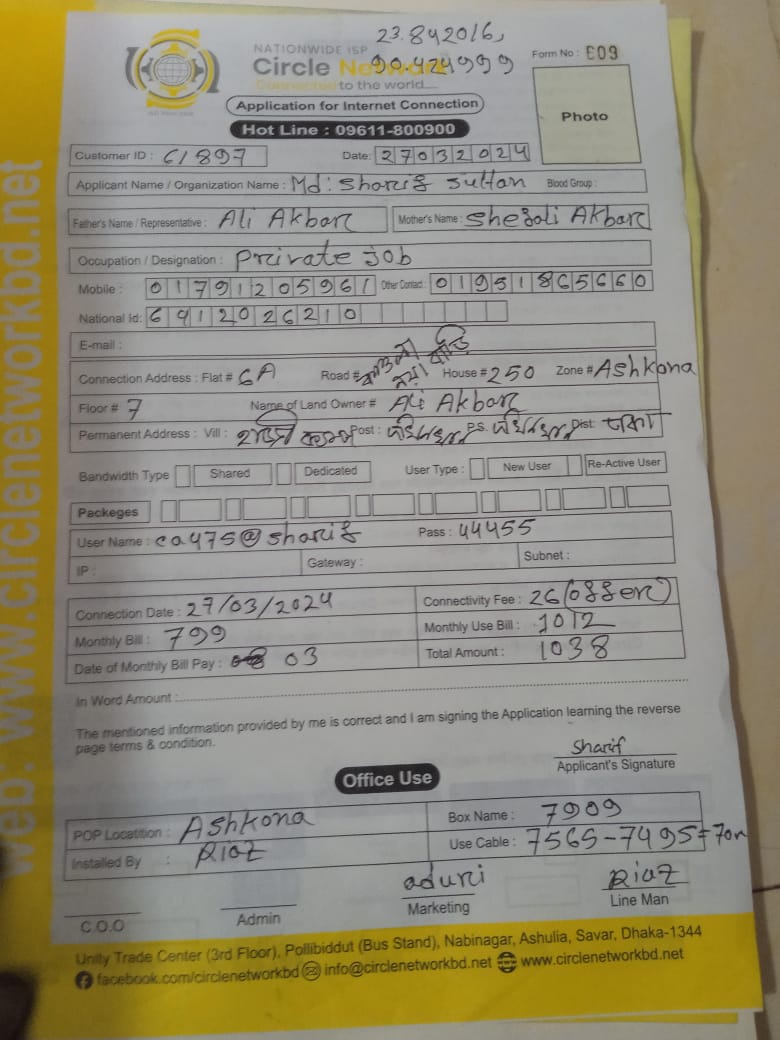 23.842016,
90.424999
NATIONWIDE ISP
Circle Network
Connected to the world....
Form No : 609
Photo
Application for Internet Connection
Hot Line : 09611-800900
Customer ID : 61897 Date: 27032024
Applicant Name / Organization Name : Md: Sharif Sultan Blood Group :
Father's Name / Representative : Ali Akbar Mother's Name : Shefali Akbar
Occupation / Designation : Private Job
Mobile : 01791205961 Other Contact : 01951865660
National Id: 6912026210
E-mail :
Connection Address : Flat # 6A Road # House # 250 Zone # Ashkona
Floor # 7 Name of Land Owner # Ali Akbar
Permanent Address : Vill : Post : P.S. Dist: ঢাকা
Bandwidth Type Shared Dedicated User Type : New User Re-Active User
Packeges
User Name : ca475@sharif Pass : 44455
IP : Gateway : Subnet :
Connection Date : 27/03/2024 Connectivity Fee : 26
Monthly Bill : 799 Monthly Use Bill : 1012
Date of Monthly Bill Pay : 03 Total Amount : 1038
In Word Amount :
The mentioned information provided by me is correct and I am signing the Application learning the reverse
page terms & condition.
Sharif
Applicant's Signature
Office Use
POP Locatition : Ashkona Box Name : 7909
Installed By : Riaz Use Cable : 7565-7495=70m
aduri Riaz
C.O.O Admin Marketing Line Man
Unity Trade Center (3rd Floor), Pollibiddut (Bus Stand), Nabinagar, Ashulia, Savar, Dhaka-1344
facebook.com/circlenetworkbd info@circlenetworkbd.net www.circlenetworkbd.net
web: www.circlenetworkbd.net